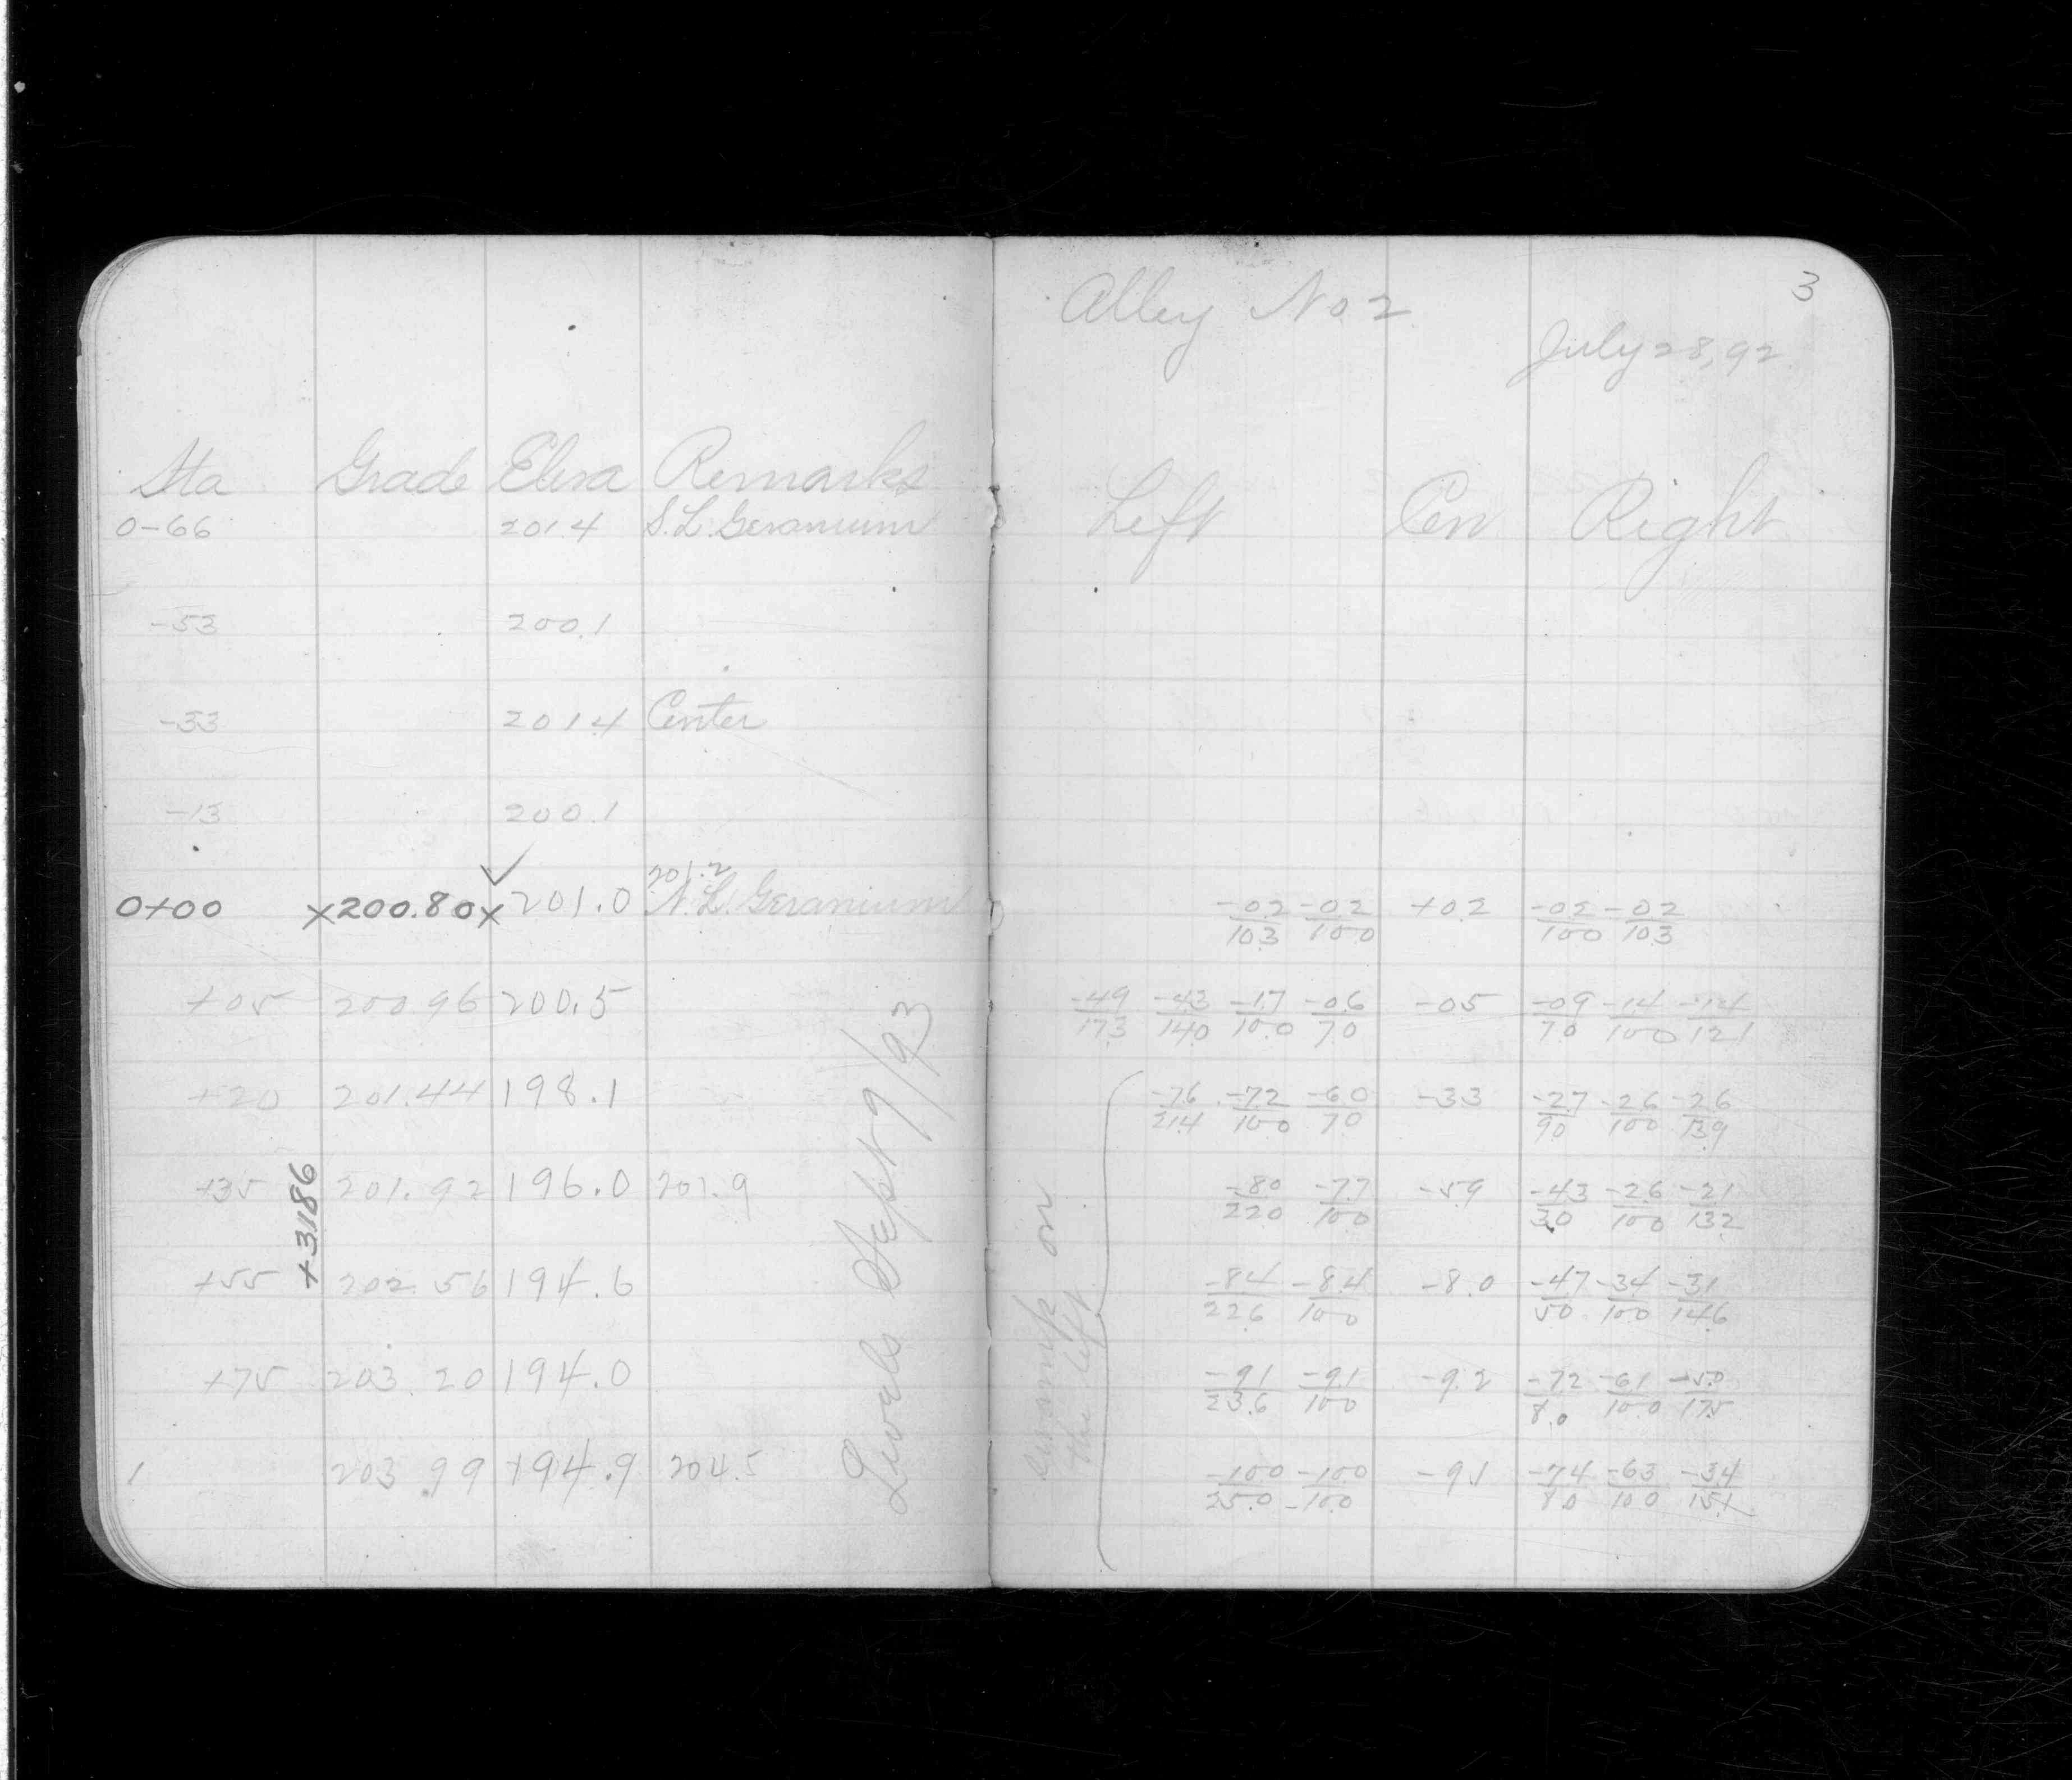 Sta Grade Eleva Remarks
0-66 201.4 S.L. Geranium
-53 200.1
-33 201.4 Center
-13 200.1
201.2
0+00 x200.80x 201.0 N.L. Geranium
+05 200.96 200.5
+20 201.44 198.1
+35 201.92 196.0 201.9
+55 202.56 194.6
+75 203.20 194.0
1 203.99 194.9 204.5
+3.186
Levels Sept 9/93
3
Alley No 2
July 28, 92
Left Cen Right
-0.2/10.3 -0.2/10.0 +0.2 -0.2/10.0 -0.2/10.3
-4.9/17.3 -4.3/14.0 -1.7/10.0 -0.6/7.0 -0.5 -0.9/7.0 -1.4/10.0 -1.4/12.1
-7.6/21.4 -7.2/10.0 -6.0/7.0 -3.3 -2.7/9.0 -2.6/10.0 -2.6/13.9
-8.0/22.0 -7.7/10.0 -5.9 -4.3/3.0 -2.6/10.0 -2.1/13.2
-8.4/22.6 -8.4/10.0 -8.0 -4.7/5.0 -3.4/10.0 -3.1/14.6
-9.1/23.6 -9.1/10.0 -9.2 -7.2/8.0 -6.1/10.0 -5.0/17.5
-10.0/25.0 -10.0/10.0 -9.1 -7.4/8.0 -6.3/10.0 -3.4/15.1
on
the left